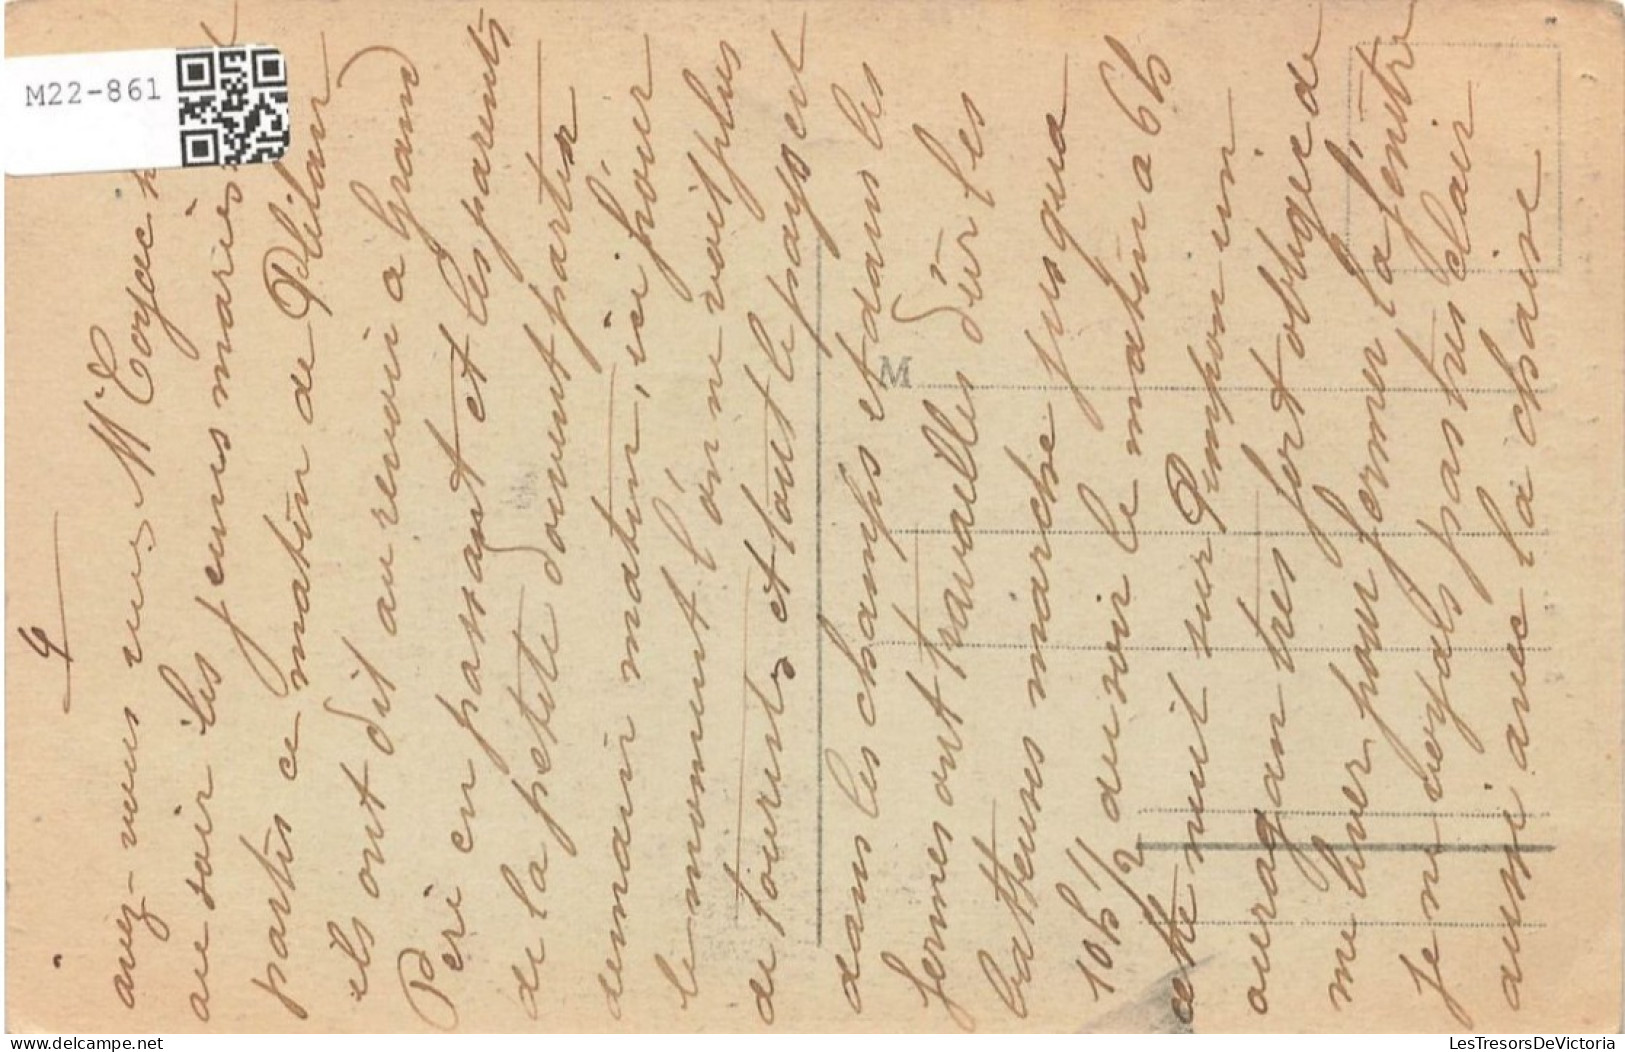 M22-861
4
avez-vous vus Mr
au soir les jeunes mariés
partis ce matin de Plélan
ils ont dit au revoir a Grand
Père en passant et les parents
de la petite doivent partir
demain matin, ici pour
le moment l'on ne voit plus
de touristes et tout le pays est
dans les champs et dans les
fermes ont travailles dur les
batteuses marche jusqua
10h 1/2 du soir le matin a 6h
cette nuit sur Paimpon un
ouragan tres fort obligée de
me lever pour fermer la fenêtre
je ne voyais pas tres clair
aussi avec la chaise
M
LesTresorsDeVictoria.com